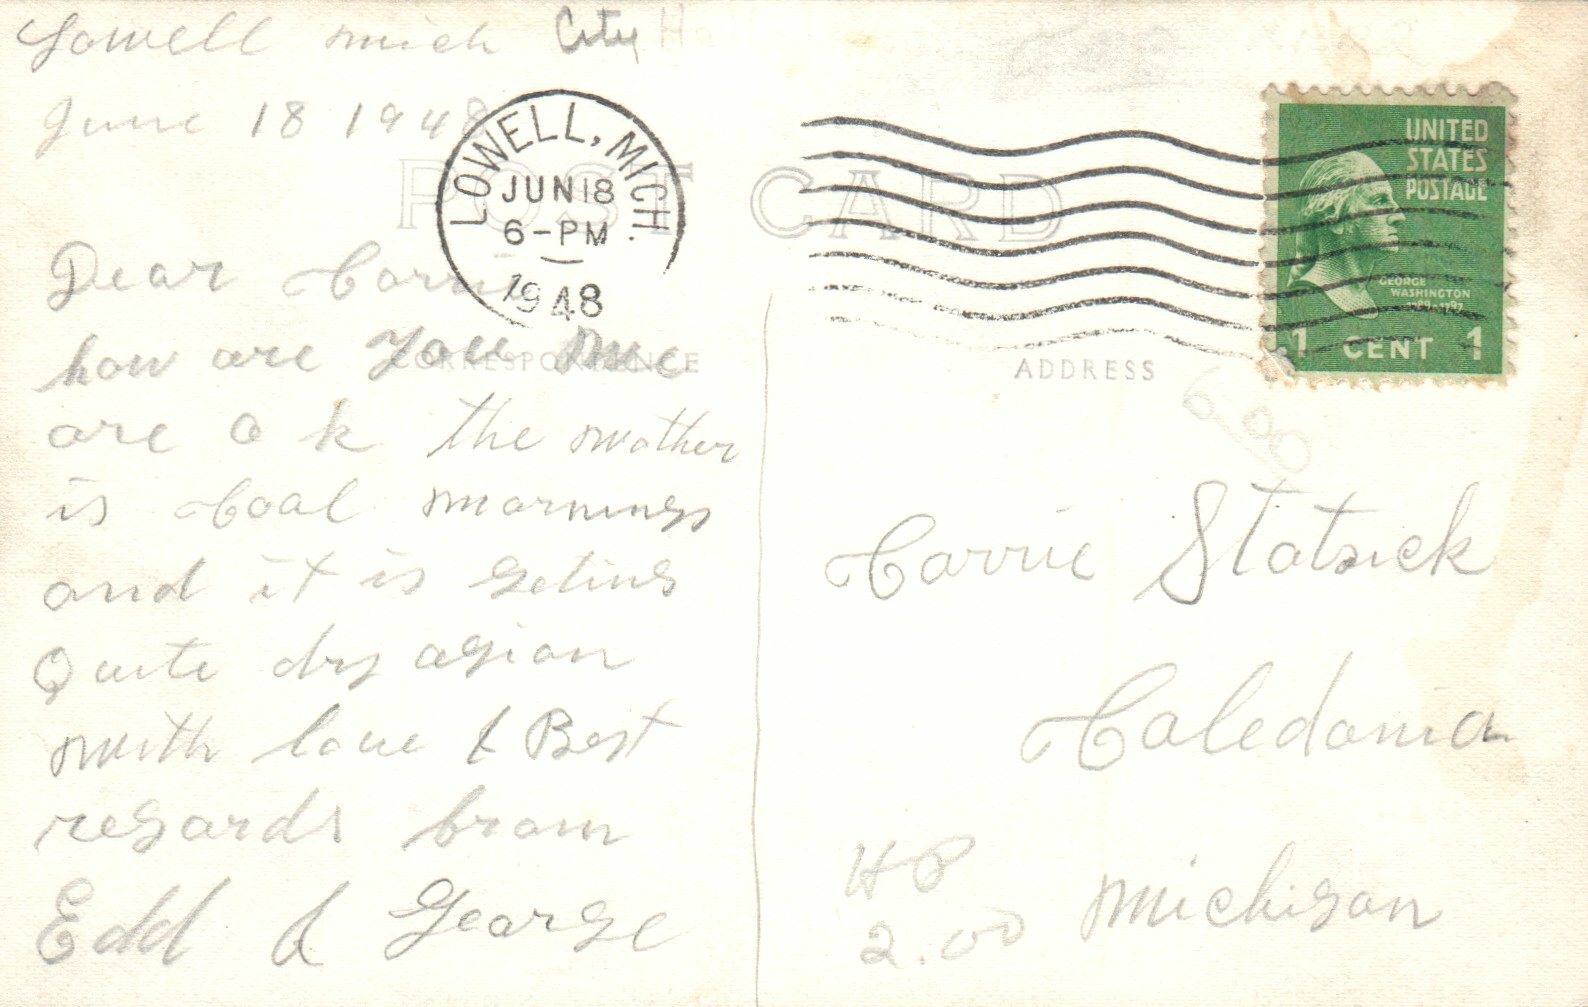 Lowell mich City Hall
June 18 1948
LOWELL, MICH.
JUN 18
6-PM
1948
UNITED
STATES
POSTAGE
GEORGE
WASHINGTON
1789-1797
1 CENT 1
POST CARD
CORRESPONDENCE
ADDRESS
Dear Carrie
how are you me
are o k the mother
is Coal mornings
and it is geting
Quite dry agian
with love & Best
regards from
Edd & George
6.00
Carrie Statsick
Caledonia
Michigan
HP
2.00